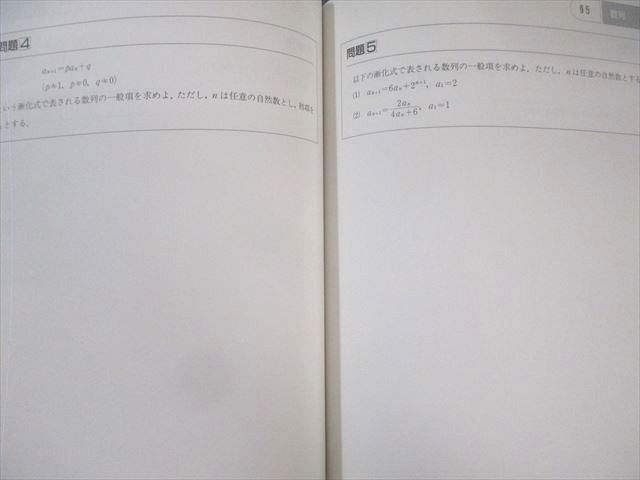 問題4
aₙ₊₁=paₙ+q
(p≠1, p≠0, q≠0)
いう漸化式で表される数列の一般項を求めよ。ただし，nは任意の自然数とし，初項を
とする。
§5 数列
問題5
以下の漸化式で表される数列の一般項を求めよ。ただし，nは任意の自然数とする
(1) aₙ₊₁=6aₙ+2ⁿ⁺¹, a₁=2
(2) aₙ₊₁=2aₙ/(4aₙ+6), a₁=1